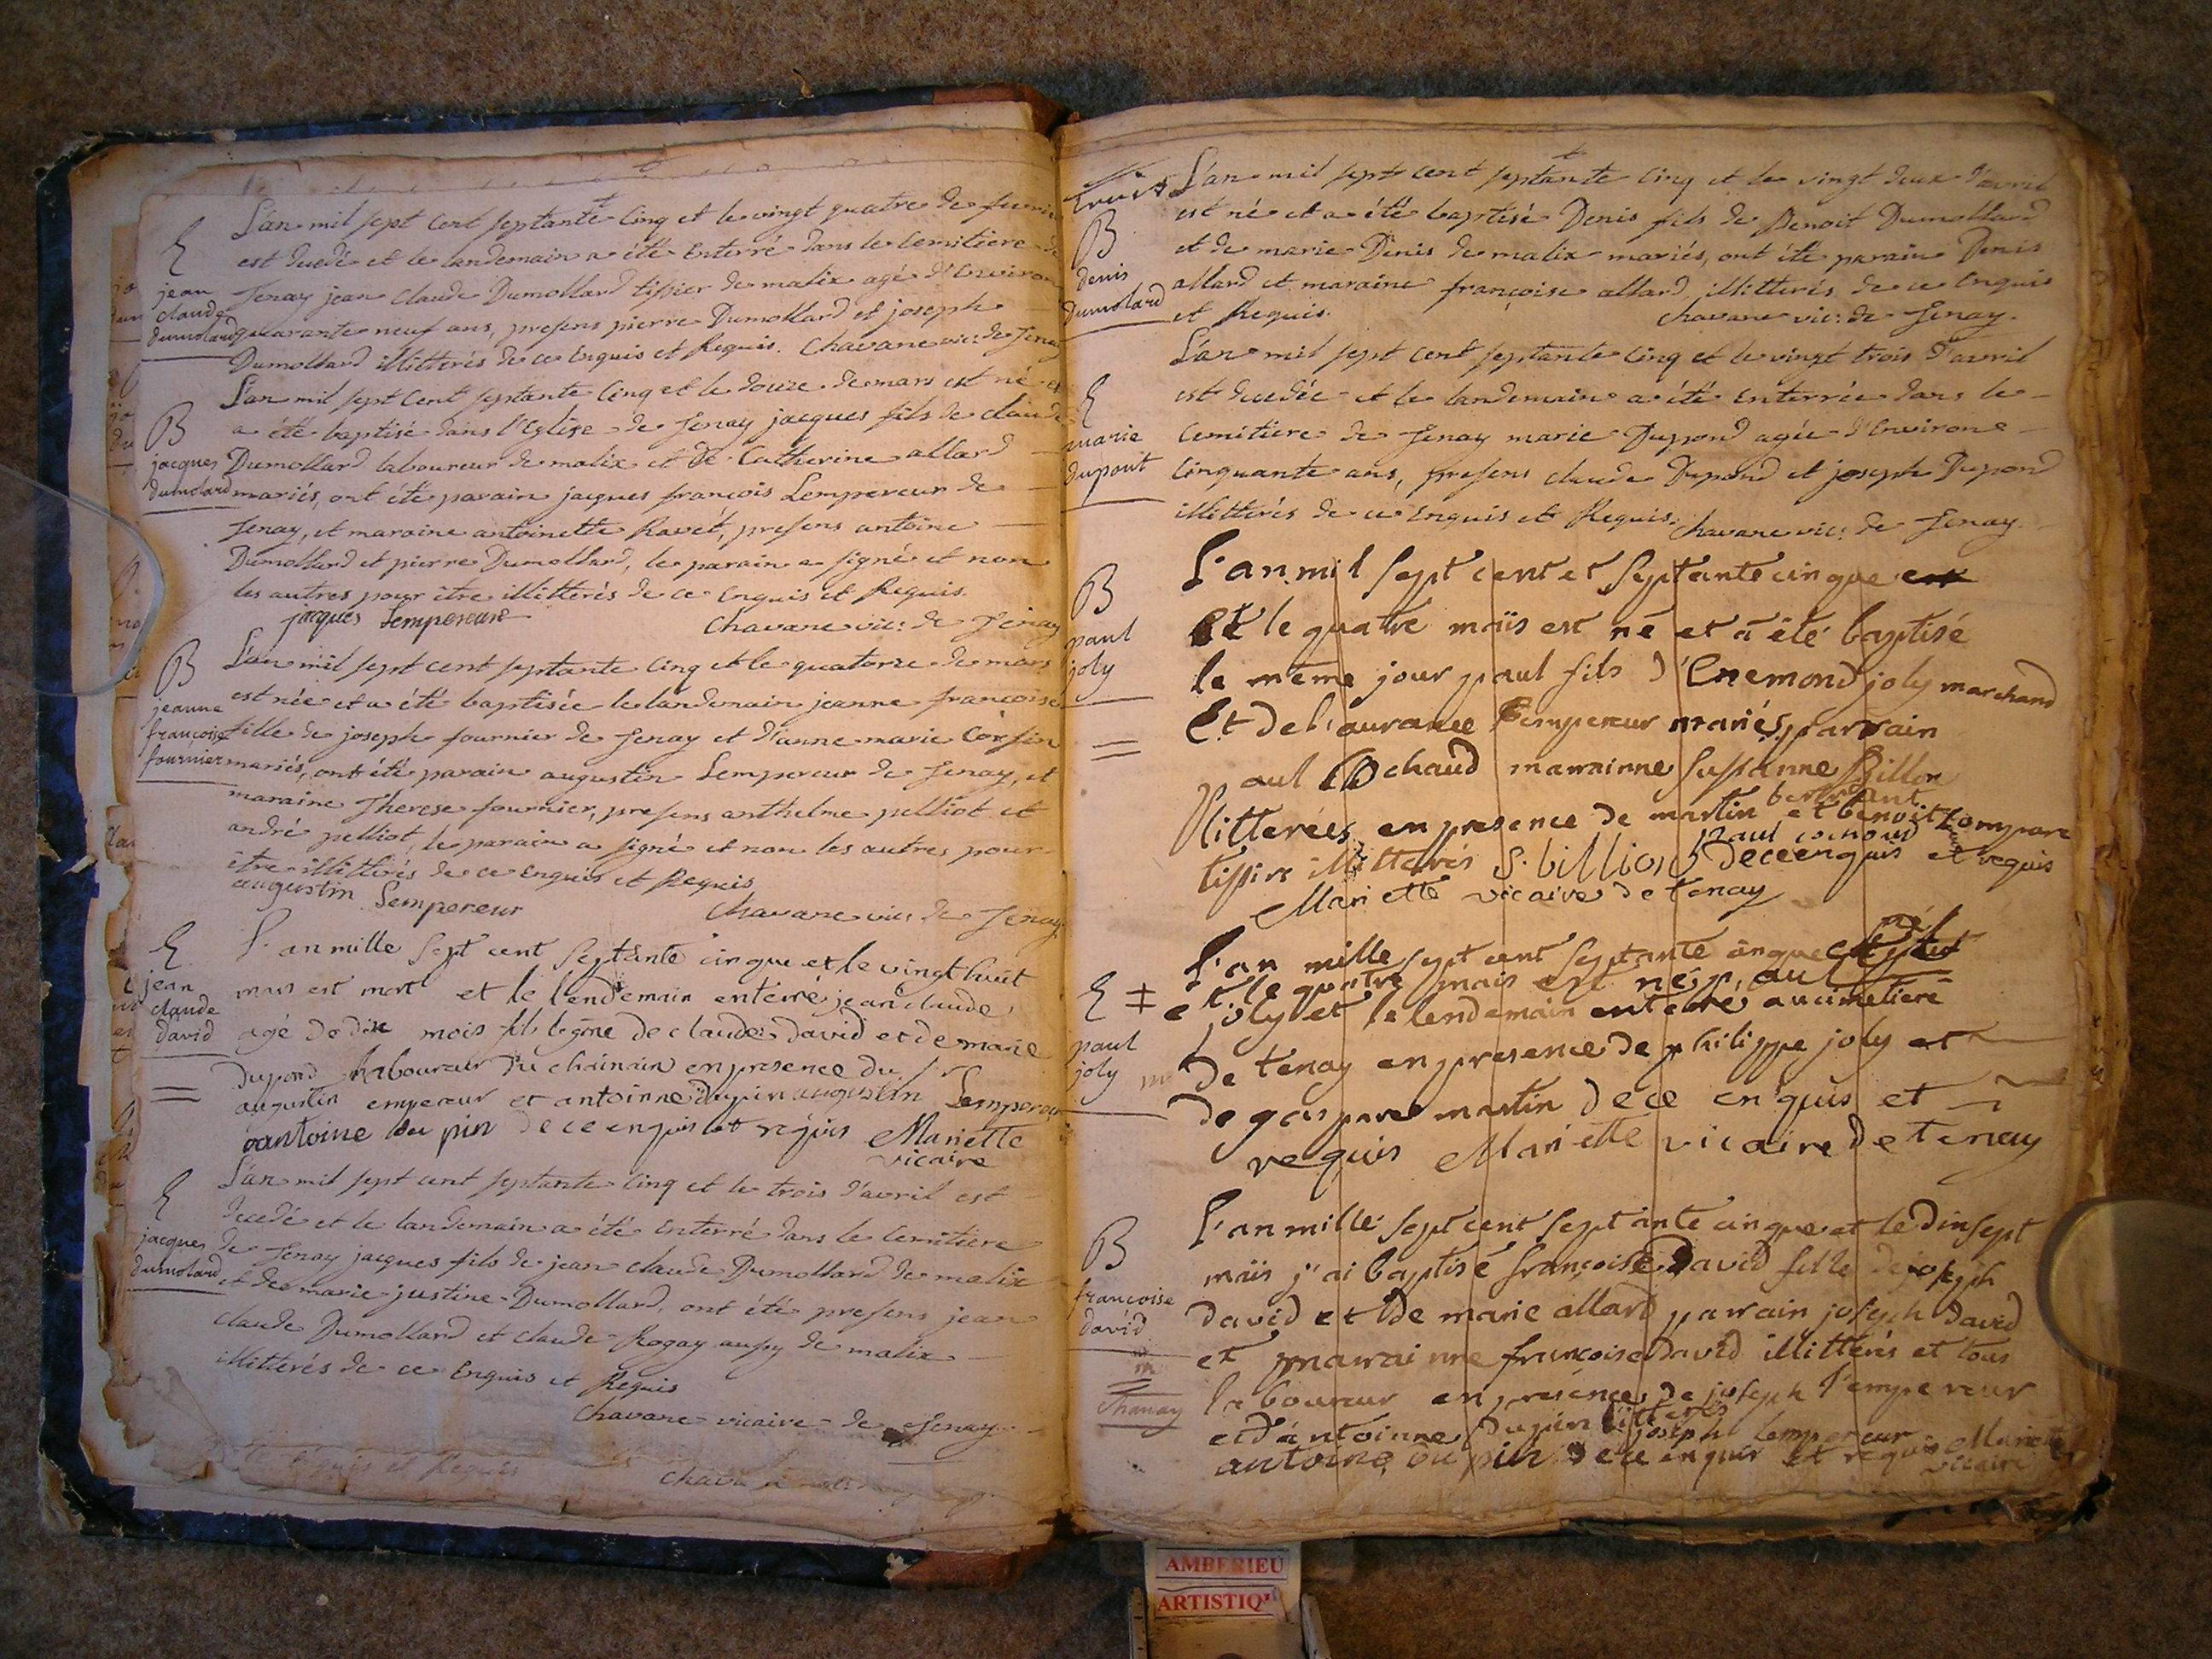 L'an mil sept cent septante cinq et le vingt quatre de
E
est decedé et le landemain a été Enterré dans le Cemitiere de
jean
claude
dumolard
Tenay jean Claude Dumollard tissier de malix agé d'Environ
quarante neuf ans, presens pierre Dumollard et joseph
Dumollard illitterés de ce Enquis et Requis. Chavane vic: de Tenay
L'an mil sept Cent septante Cinq et le douze de mars est né et
B
jacques
dumolard
a été baptisé dans l'Eglise de Tenay jacques fils de claude
Dumollard laboureur de malix et de Catherine allard
mariés, ont été parain jacques françois Lempereur de
Tenay, et maraine antoinette Ravet, presens antoine
Dumollard et pierre Dumollard, le parain a signé et non
les autres pour être illitterés de ce Enquis et Requis.
jacques Lempereur
Chavane vic: de Tenay
B
jeanne
françoise
fournier
L'an mil sept cent septante Cinq et le quatorze de mars
est née et a été baptisée le landemain jeanne françoise
fille de joseph fournier de Tenay et d'anne marie
mariés, ont été parain augustin Lempereur de Tenay, et
maraine Therese fournier, presens anthelme pelliot et
andré pelliot, le parain a signé et non les autres pour
être illitterés de ce Enquis et Requis
augustin Lempereur
Chavane vic: de Tenay
E
jean
claude
david
L'an mille sept cent septante cinque et le vingt huit
mars est mort et le lendemain enterré jean claude
agé de dix mois fils legme de claude david et de marie
dupond laboureur du chainain en presence du sr
augustin empereur et antoinne dupin augustin Lempereur
antoine du pin de ce enquis et requis Mariette
vicaire
E
jacques
dumolard
L'an mil sept cent septante Cinq et le trois d'avril est
decedé et le landemain a été Enterré dans le Cemitiere
de Tenay jacques fils de jean claude Dumollard de malix
et de marie justine Dumollard, ont été presens jean
claude Dumollard et claude Rogay aussy de malix
illitterés de ce Enquis et Requis
Chavane vicaire de Tenay
Enquis et Requis
B
denis
dumolard
L'an mil sept cent septante Cinq et le vingt deux d'avril
est né et a été baptisé Denis fils de Benoit Dumollard
et de marie Denis de malix mariés, ont été parain Denis
allard et maraine françoise allard illitterés de ce Enquis
et Requis.
Chavane vic: de Tenay.
E
marie
dupont
L'an mil sept cent septante Cinq et le vingt trois d'avril
est decedée et le landemain a été Enterrée dans le
Cemitiere de Tenay marie Dupond agée d'Environ
Cinquante ans, presens claude Dupond et joseph Dupond
illitterés de ce Enquis et Requis. Chavane vic: de Tenay.
B
paul
joly
L'an mil sept cent et septante cinque
et le quatre maïs est né et a été baptisé
le même jour paul fils d'Enemond joly marchand
Et de laurance Lempereur mariés parrain
paul Cochaud marrainne sussanne Billon
litterées en presence de martin bertrant et benoit compare
tissire illitterés S. billion paul cochoud de ce enquis et requis
Mariette vicaire de tenay
E
paul
joly
L'an mille sept cent septante cinque
et le quatre mais est né paul
joly et le lendemain enterré au cimetiere
de tenay en presence de philippe joly et
de gaspare martin de ce enquis et
requis Mariette vicaire de tenay
B
françoise
david
L'an mille sept cent septante cinque et le dinsept
maïs j'ai baptisé françoise david fille de joseph
david et de marie allard parrain joseph david
et marrainne françoise david illitterés et tous
laboureur en presence de joseph l'empereur
et d'antoinne dupin litterés joseph lempereur
antoine du pin de ce enquis et requis Mariette
vicaire
AMBERIEU
ARTISTIQ